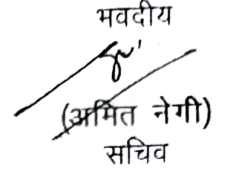 भवदीय
(अमित नेगी)
सचिव